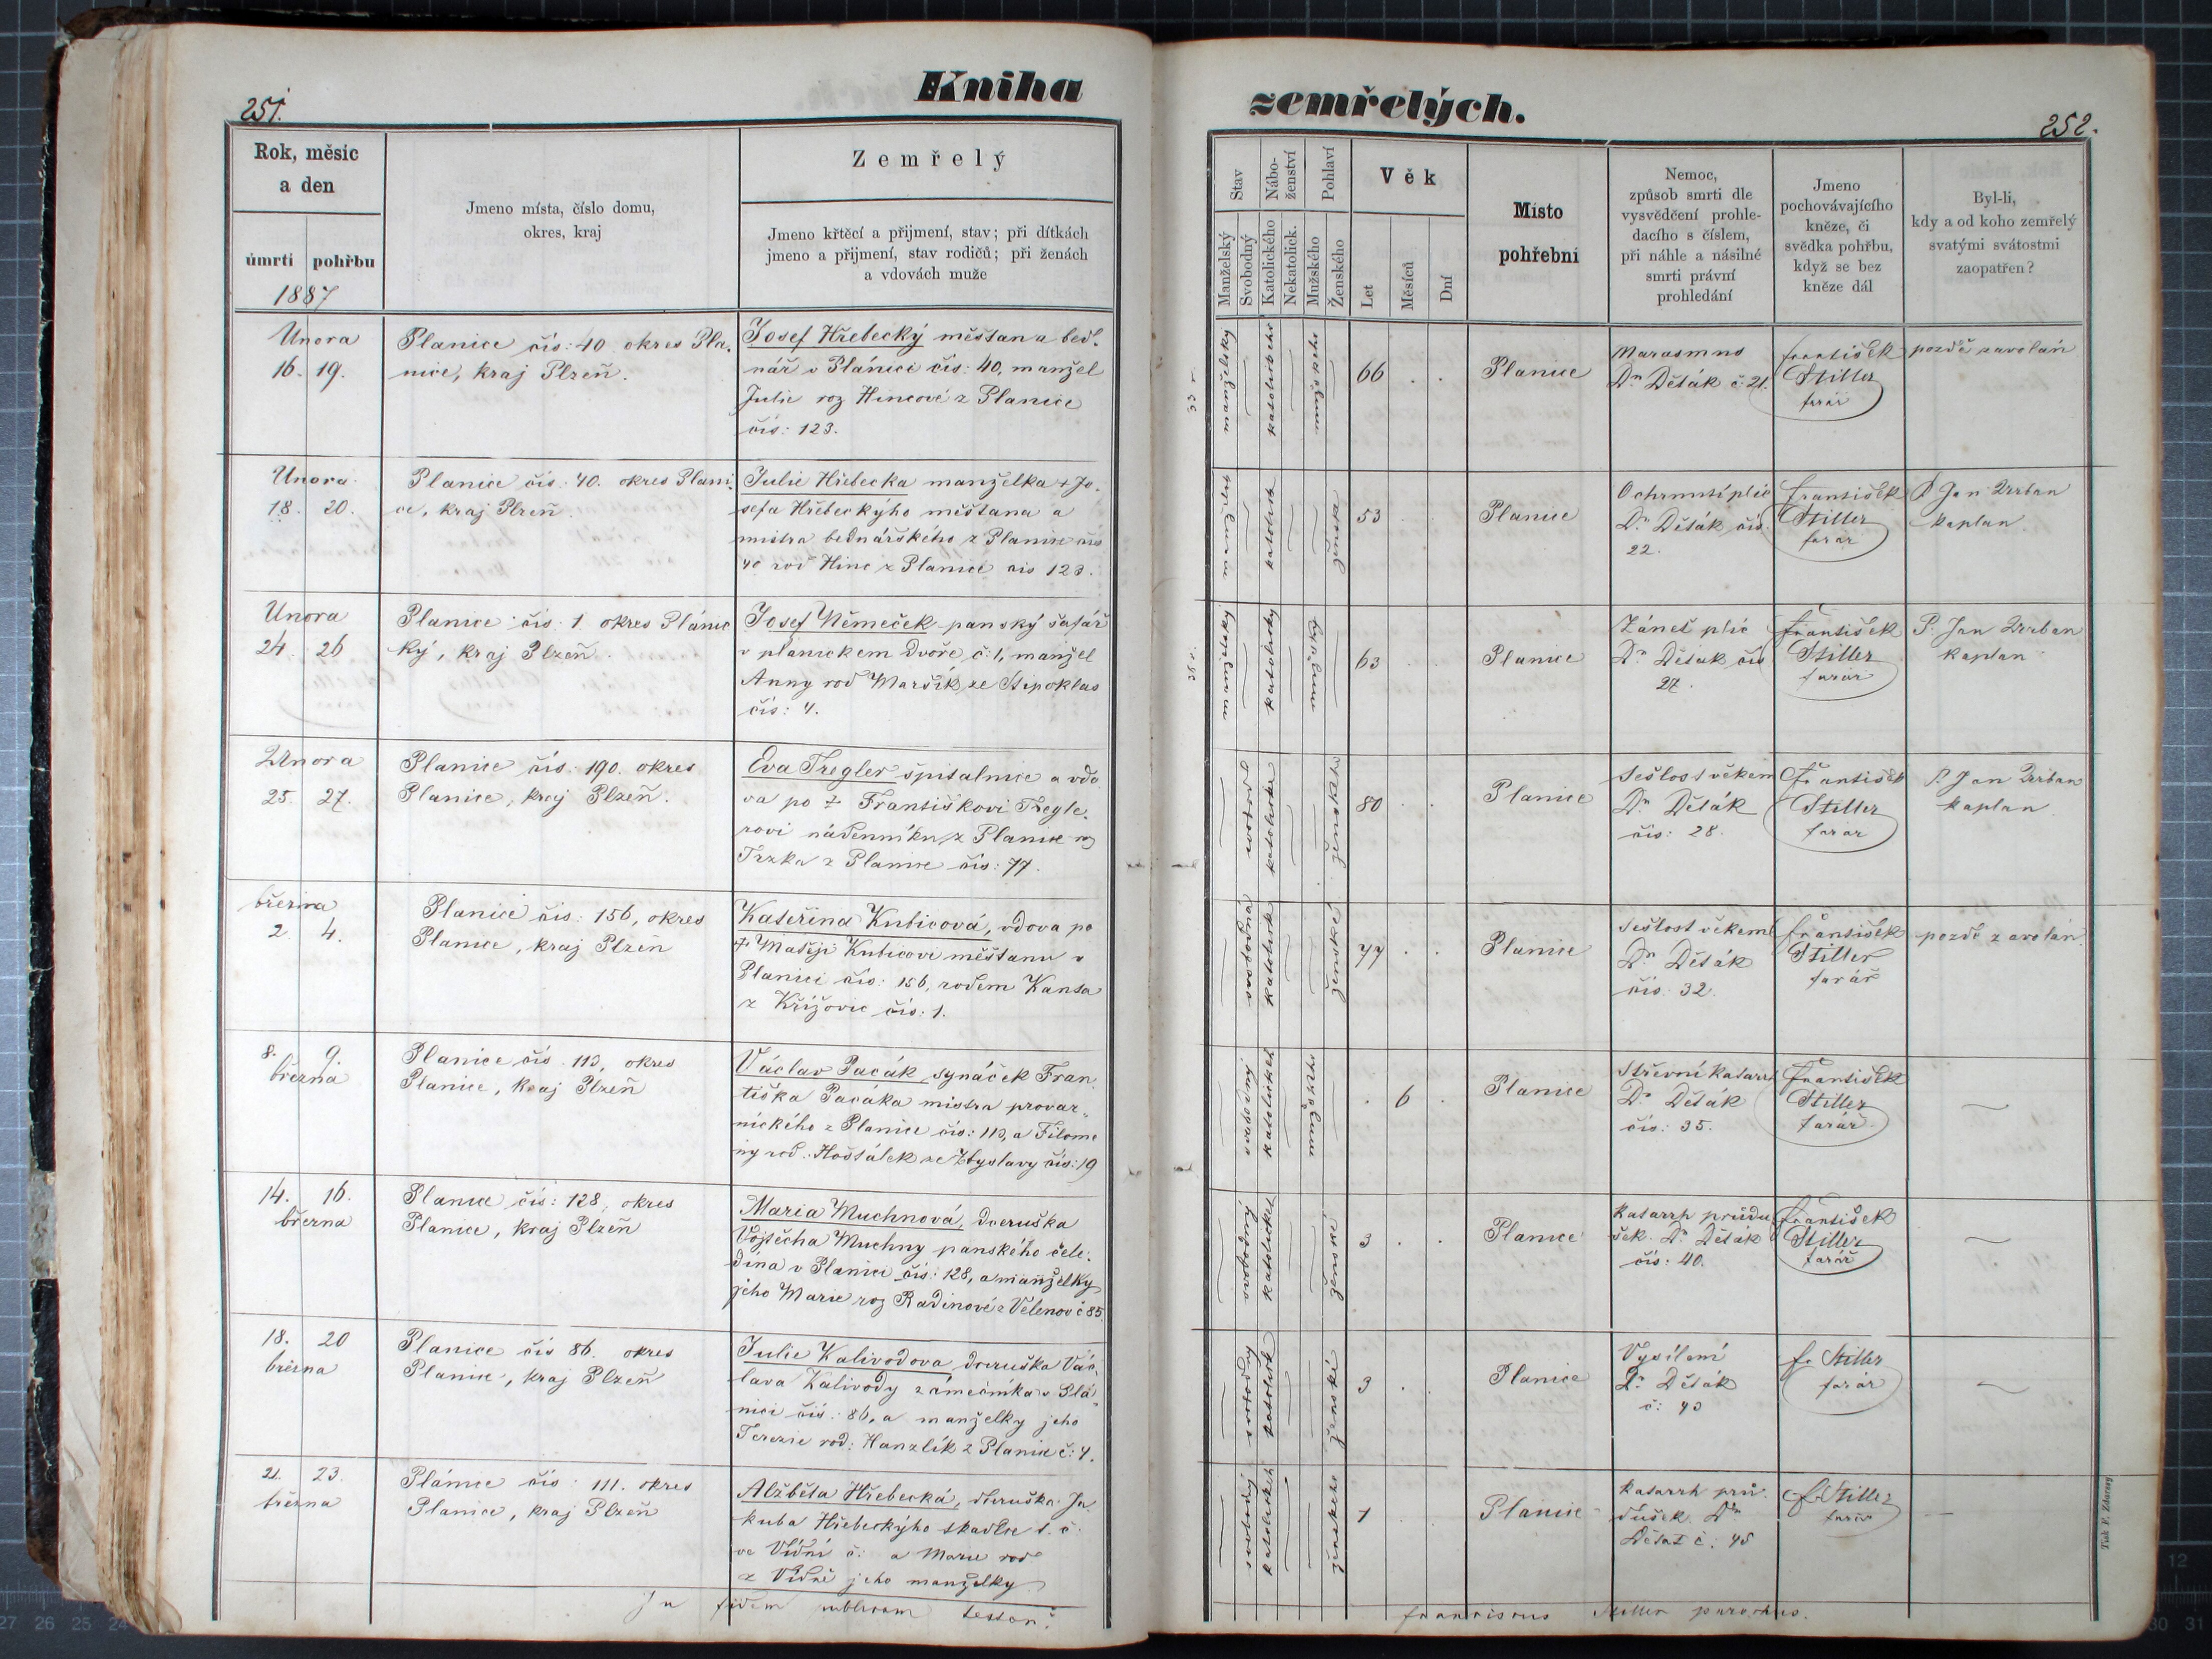 251.
Kniha
Rok, měsíc
a den
úmrtí
pohřbu
1887
Jmeno místa, číslo domu,
okres, kraj
Zemřelý
Jmeno křtěcí a přijmení, stav; při dítkách
jmeno a přijmení, stav rodičů; při ženách
a vdovách muže
Unora
16. 19.
Planice čís: 40 okres Pla.
nice, kraj Plzeň.
Josef Hřebecký měšťan a bed.
nář v Plánici čís: 40, manžel
Julie roz Hincové z Planice
čís: 123.
Unora
18. 20.
Planice čís: 40. okres Plani.
ce, kraj Plzeň.
Julie Hřebecka manželka + Jo.
sefa Hřebeckýho měštana a
mistra bednářského z Planice čís
40 rod Hinc z Planice čis 123.
Unora
24. 26
Planice čís: 1. okres Plánic
ký, kraj Plzeň.
Josef Němeček panský šafář
v planickem dvoře, č: 1, manžel
Anny rod Maršík ze Stipoklas
čís: 4.
Unora
25. 27.
Planice čís: 190. okres
Planice, kraj Plzeň.
Eva Tregler špitalnice a vdo
va po + Františkovi Tregle.
rovi nádenníku, z Planice roz
Trzka z Planice čís: 77.
března
2. 4.
Planice čis: 156, okres
Planice, kraj Plzeň
Kateřina Kubicová, vdova po
+ Matěji Kubicovi měštanu v
Planici čís: 156, rodem Kanta
z Křížovic čís: 1.
8. 9.
března
Planice čís. 113, okres
Planice, kraj Plzeň
Václav Pacák, synáček Fran
tiška Pacáka mistra provaz-
nického z Planice čís: 113, a Filome
ny rod. Hoštálek ze Zbyslavy čís: 19
14. 16.
března
Planice čís: 128, okres
Planice, kraj Plzeň
Maria Muchnová, dceruška
Vojtěcha Muchny panského čele.
dína v Planici čís: 128, a manželky
jeho Marie roz Radinové z Velenov č 85.
18. 20
března
Planice čís 86. okres
Planice, kraj Plzeň
Julie Kalivodova, dceruška Vác
lava Kalivody zámečníka v Plá
nici čís: 86, a manželky jeho
Terezie rod: Hanzlík z Planice č: 4.
21. 23.
března
Plánice čís: 111. okres
Planice, kraj Plzeň
Alžběta Hřebecká, dceruška Ja
kuba Hřebeckýho t. č.
ve Vídni č: a Marie rod
z Vídně jeho manželky
In fidem publicam testor.
zemřelých.
252.
Stav
Manželský
Svobodný
Nábo-
ženství
Katolického
Nekatolick.
Pohlaví
Mužského
Ženského
Věk
Let
Měsíců
Dní
Místo
pohřební
Nemoc,
způsob smrti dle
vysvědčení prohle-
dacího s číslem,
při náhle a násilné
smrti právní
prohledání
Jmeno
pochovávajícího
kněze, či
svědka pohřbu,
když se bez
kněze dál
Byl-li,
kdy a od koho zemřelý
svatými svátostmi
zaopatřen?
manželský
katolického
mužského
66
Planice
Marasmus
Dr Děták č: 21.
František
Stiller
farář
pozdě zavolán
katolick
ženska
53
Planice
Ochrnutí plic
Dr Děták čís.
22.
František
Stiller
farář
P. Jan Urban
kaplan
manželský
katolický
mužský
63
Planice
Zánět plic
Dr Děták čís
27.
František
Stiller
farář
P. Jan Urban
kaplan
katolicka
ženského
80
Planice
Sešlost věkem
Dr Děták
čís: 28.
František
Stiller
farář
P. Jan Urban
kaplan
svobodná
katolick
ženské
77
Planice
Sešlost věkem
Dr Děták
čís. 32.
František
Stiller
farář
pozdě zavolán.
svobodný
katolické
mužské
6
Planice
Střevní katarrh
Dr Děták
čís: 35.
František
Stiller
farář
svobodný
katolické
ženské
3
Planice
Katarrh průdu
šek. Dr Děták
čís: 40.
František
Stiller
farář
svobodný
katolick
ženské
3
Planice
Vysílení
Dr Děták
č: 43
f. Stiller
farář
svobodný
katolické
ženského
1
Planice
Katarrh prů.
dušek. Dr
Děták č: 45
f. Stiller
farář
Franciscus Stiller parochus.
Tisk F. Zdarsky